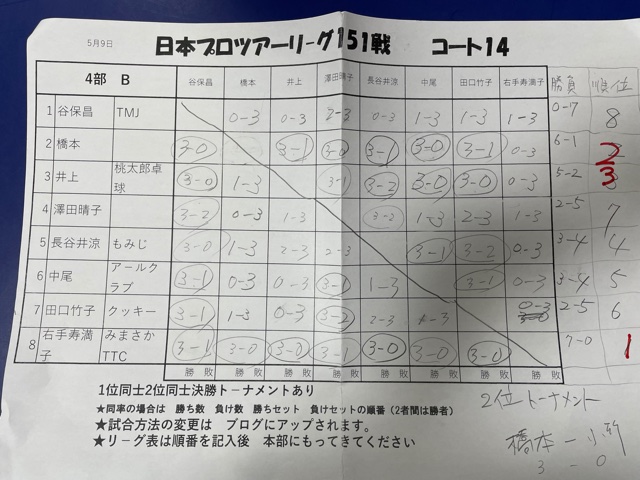 5月9日
日本プロツアーリーグ151戦 コート14
4部 B 谷保昌 橋本 井上 澤田晴子 長谷井涼 中尾 田口竹子 右手寿満子 勝負 順位
1 谷保昌 TMJ 0-3 0-3 2-3 0-3 1-3 1-3 1-3 0-7 8
2 橋本 3-0 3-1 3-0 3-1 3-0 3-1 0-3 6-1 2
3 井上 桃太郎卓球 3-0 1-3 3-1 3-2 3-0 3-0 0-3 5-2 3
4 澤田晴子 3-2 0-3 1-3 3-2 1-3 2-3 1-3 2-5 7
5 長谷井涼 もみじ 3-0 1-3 2-3 2-3 3-1 3-2 0-3 3-4 4
6 中尾 アールクラブ 3-1 0-3 0-3 3-1 1-3 3-1 0-3 3-4 5
7 田口竹子 クッキー 3-1 1-3 0-3 3-2 2-3 1-3 0-3 2-5 6
8 右手寿満子 みまさかTTC 3-1 3-0 3-0 3-1 3-0 3-0 3-0 7-0 1
勝 敗 勝 敗 勝 敗 勝 敗 勝 敗 勝 敗 勝 敗 勝 敗
1位同士2位同士決勝トーナメントあり
★同率の場合は 勝ち数 負け数 勝ちセット 負けセットの順番(2者間は勝者)
★試合方法の変更は ブログにアップされます。
★リーグ表は順番を記入後 本部にもってきてください
2位トーナメント
橋本-小
3-0